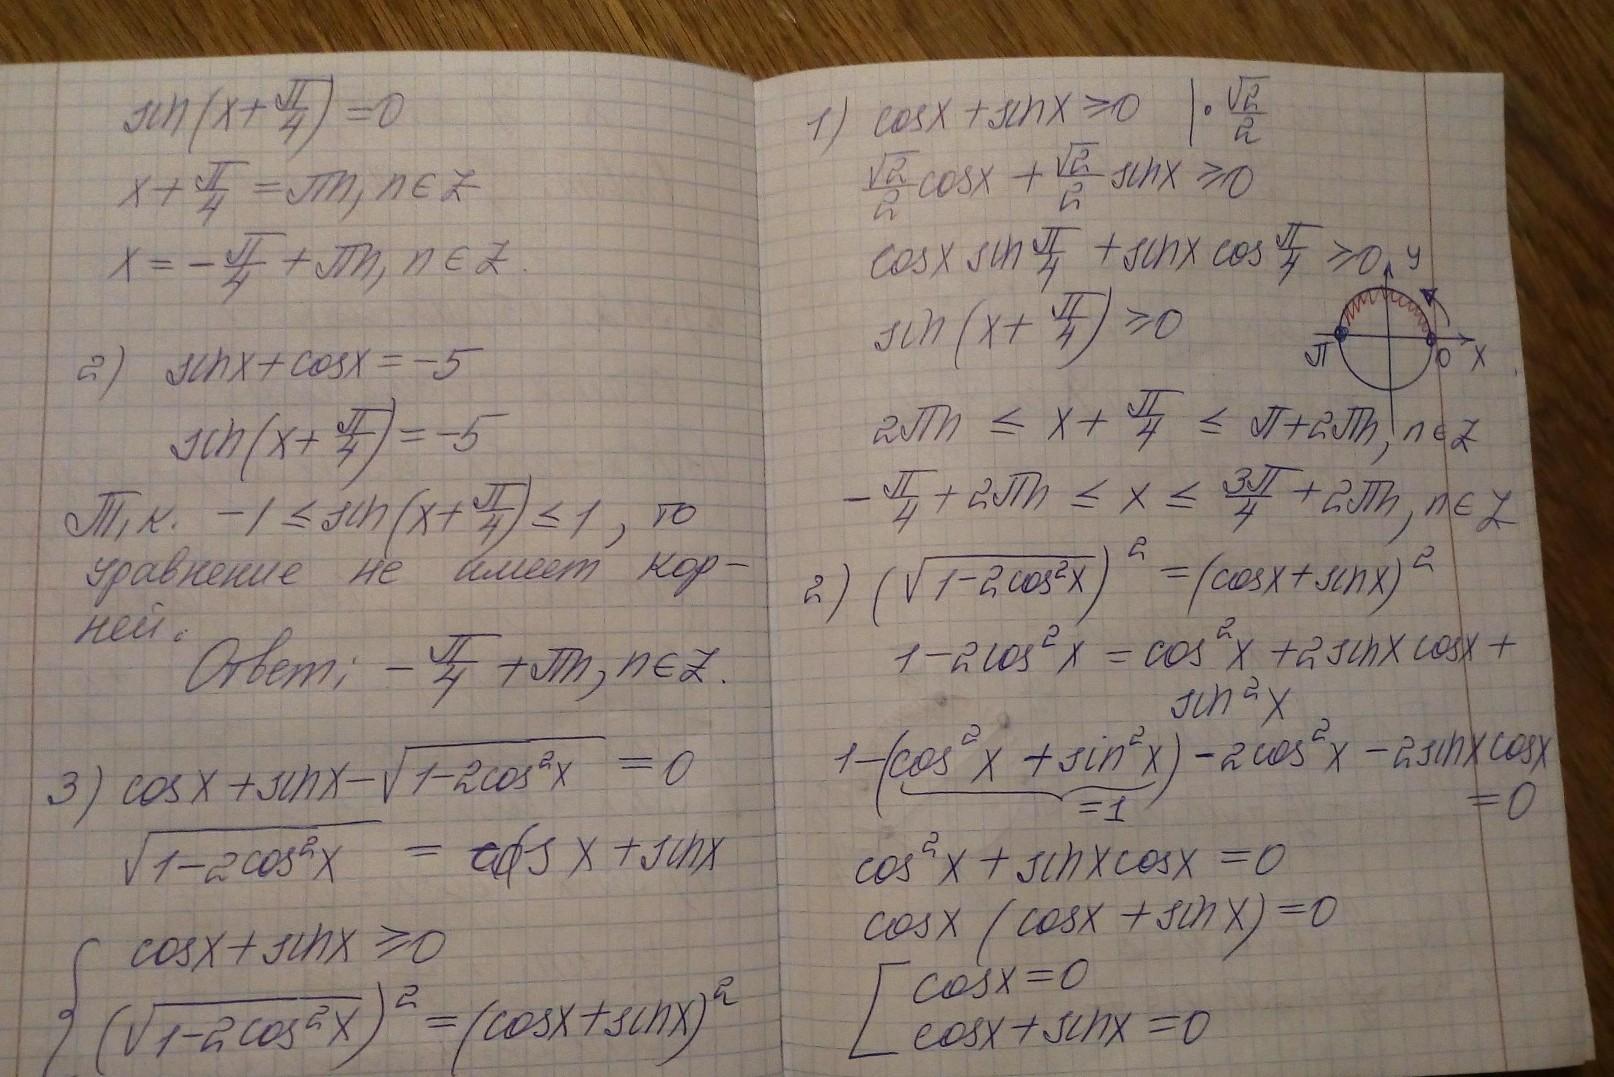 sin(x + π/4) = 0
x + π/4 = πn, n ∈ Z
x = -π/4 + πn, n ∈ Z.
2) sinx + cosx = -5
sin(x + π/4) = -5
Т.к. -1 ≤ sin(x + π/4) ≤ 1, то
уравнение не имеет кор-
ней.
Ответ: -π/4 + πn, n ∈ Z.
3) cosx + sinx - √(1-2cos²x) = 0
√(1-2cos²x) = cos x + sinx
{ cosx + sinx ≥ 0
(√(1-2cos²x))² = (cosx + sinx)²
1) cosx + sinx ≥ 0 | · √2/2
√2/2 cosx + √2/2 sinx ≥ 0
cosx sin π/4 + sinx cos π/4 ≥ 0
sin(x + π/4) ≥ 0
y
π 0 x
2πn ≤ x + π/4 ≤ π + 2πn, n ∈ Z
-π/4 + 2πn ≤ x ≤ 3π/4 + 2πn, n ∈ Z
2) (√(1-2cos²x))² = (cosx + sinx)²
1-2cos²x = cos²x + 2sinx cosx +
sin²x
1-(cos²x + sin²x) - 2cos²x - 2sinx cosx
=1 = 0
cos²x + sinx cosx = 0
cosx (cosx + sinx) = 0
[ cosx = 0
cosx + sinx = 0